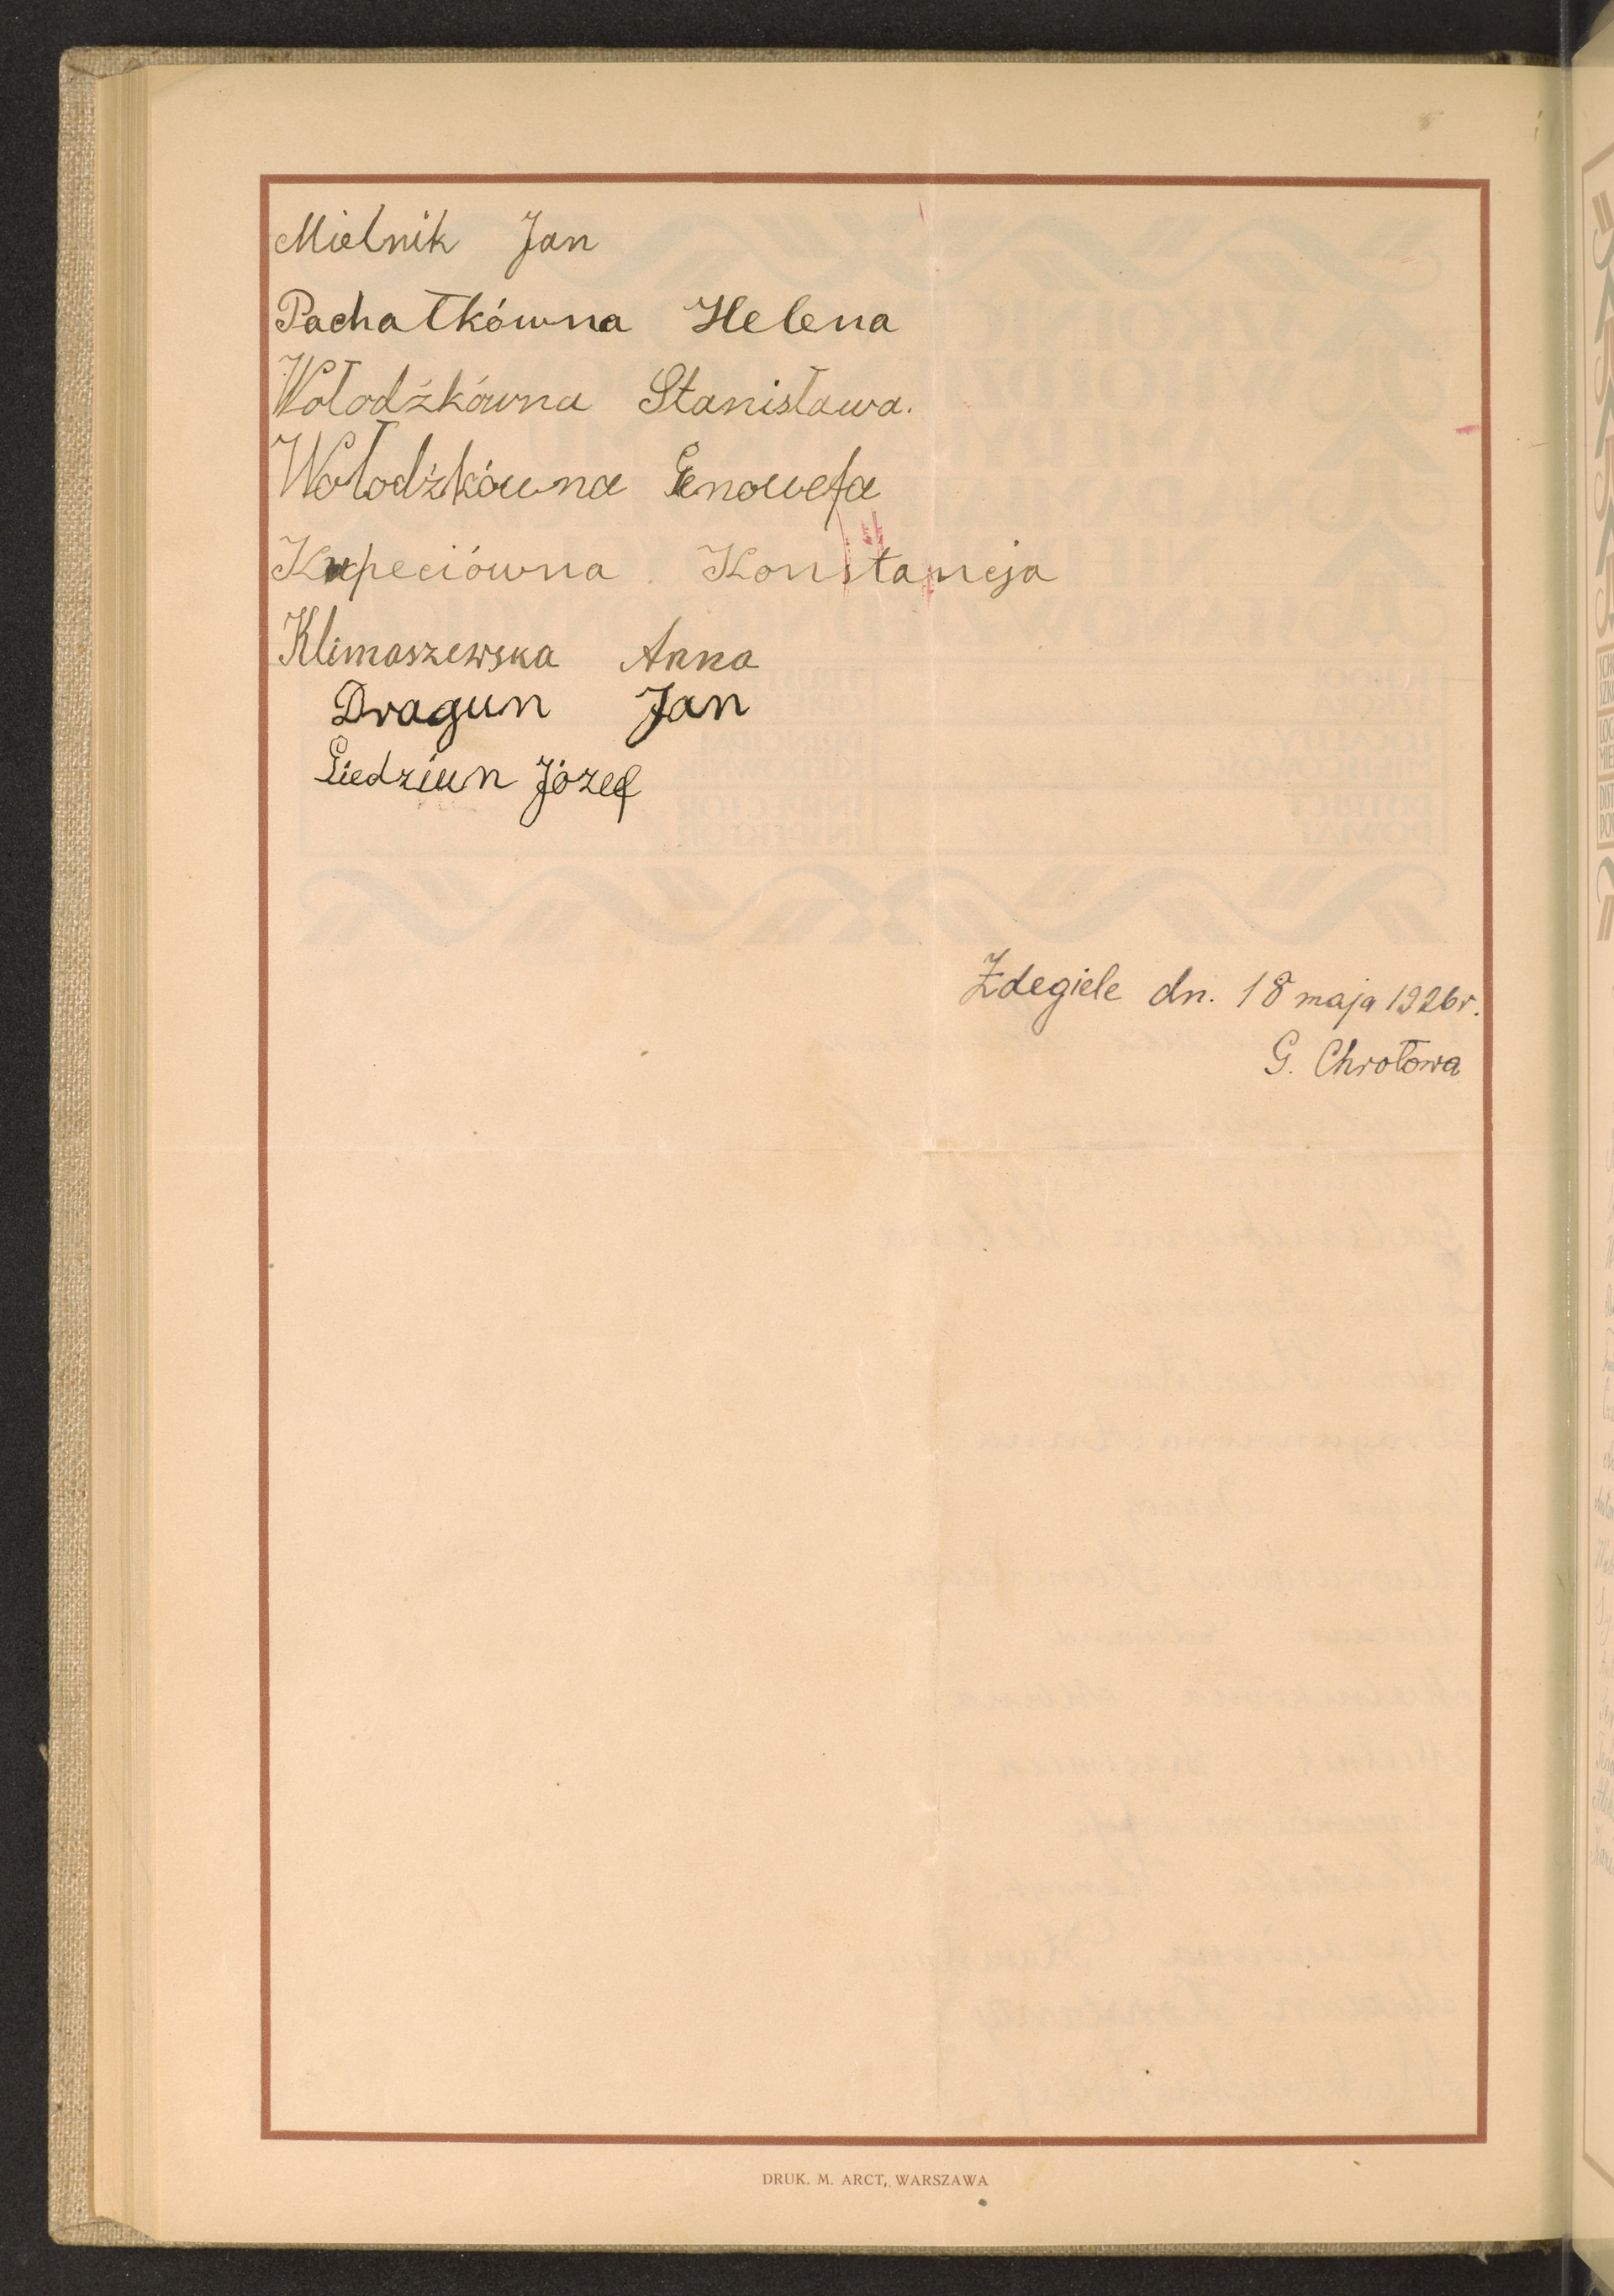 Mielnik Jan
Pachałkówna Helena
Wołodźkówna Stanisława.
Wołodźkówna Genowefa
Kupeciówna Konstancja
Klimaszewska Anna
Dragun Jan
Giedziun Józef
Żdegiele dn. 18 maja 1926r.
G. Chrołowa
DRUK. M. ARCT, WARSZAWA